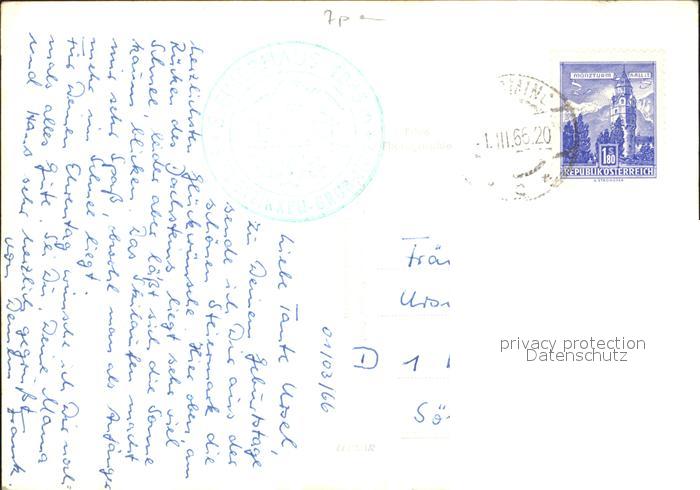 7p
01/03/66
Liebe Tante Ursel,
zu Deinem Geburtstage
sende ich Dir aus der
schönen Steiermark die
herzlichsten Glückwünsche. Hier oben, am
Rücken des Dachsteins liegt sehr viel
Schnee, leider aber läßt sich die Sonne
kaum blicken. Das Skilaufen macht
mir sehr Spaß, obwohl man als Anfänger
mehr im Schnee liegt.
Für Deinen Ehrentag wünsche ich Dir noch-
mals alles Gute. Sei Du, Deine Mama
und Hans sehr herzlich gegrüßt
von Deinem Frank
1. III. 66. 20
MÜNZTURM HALL I. T.
S 1.80
REPUBLIK ÖSTERREICH
D
1
privacy protection
Datenschutz